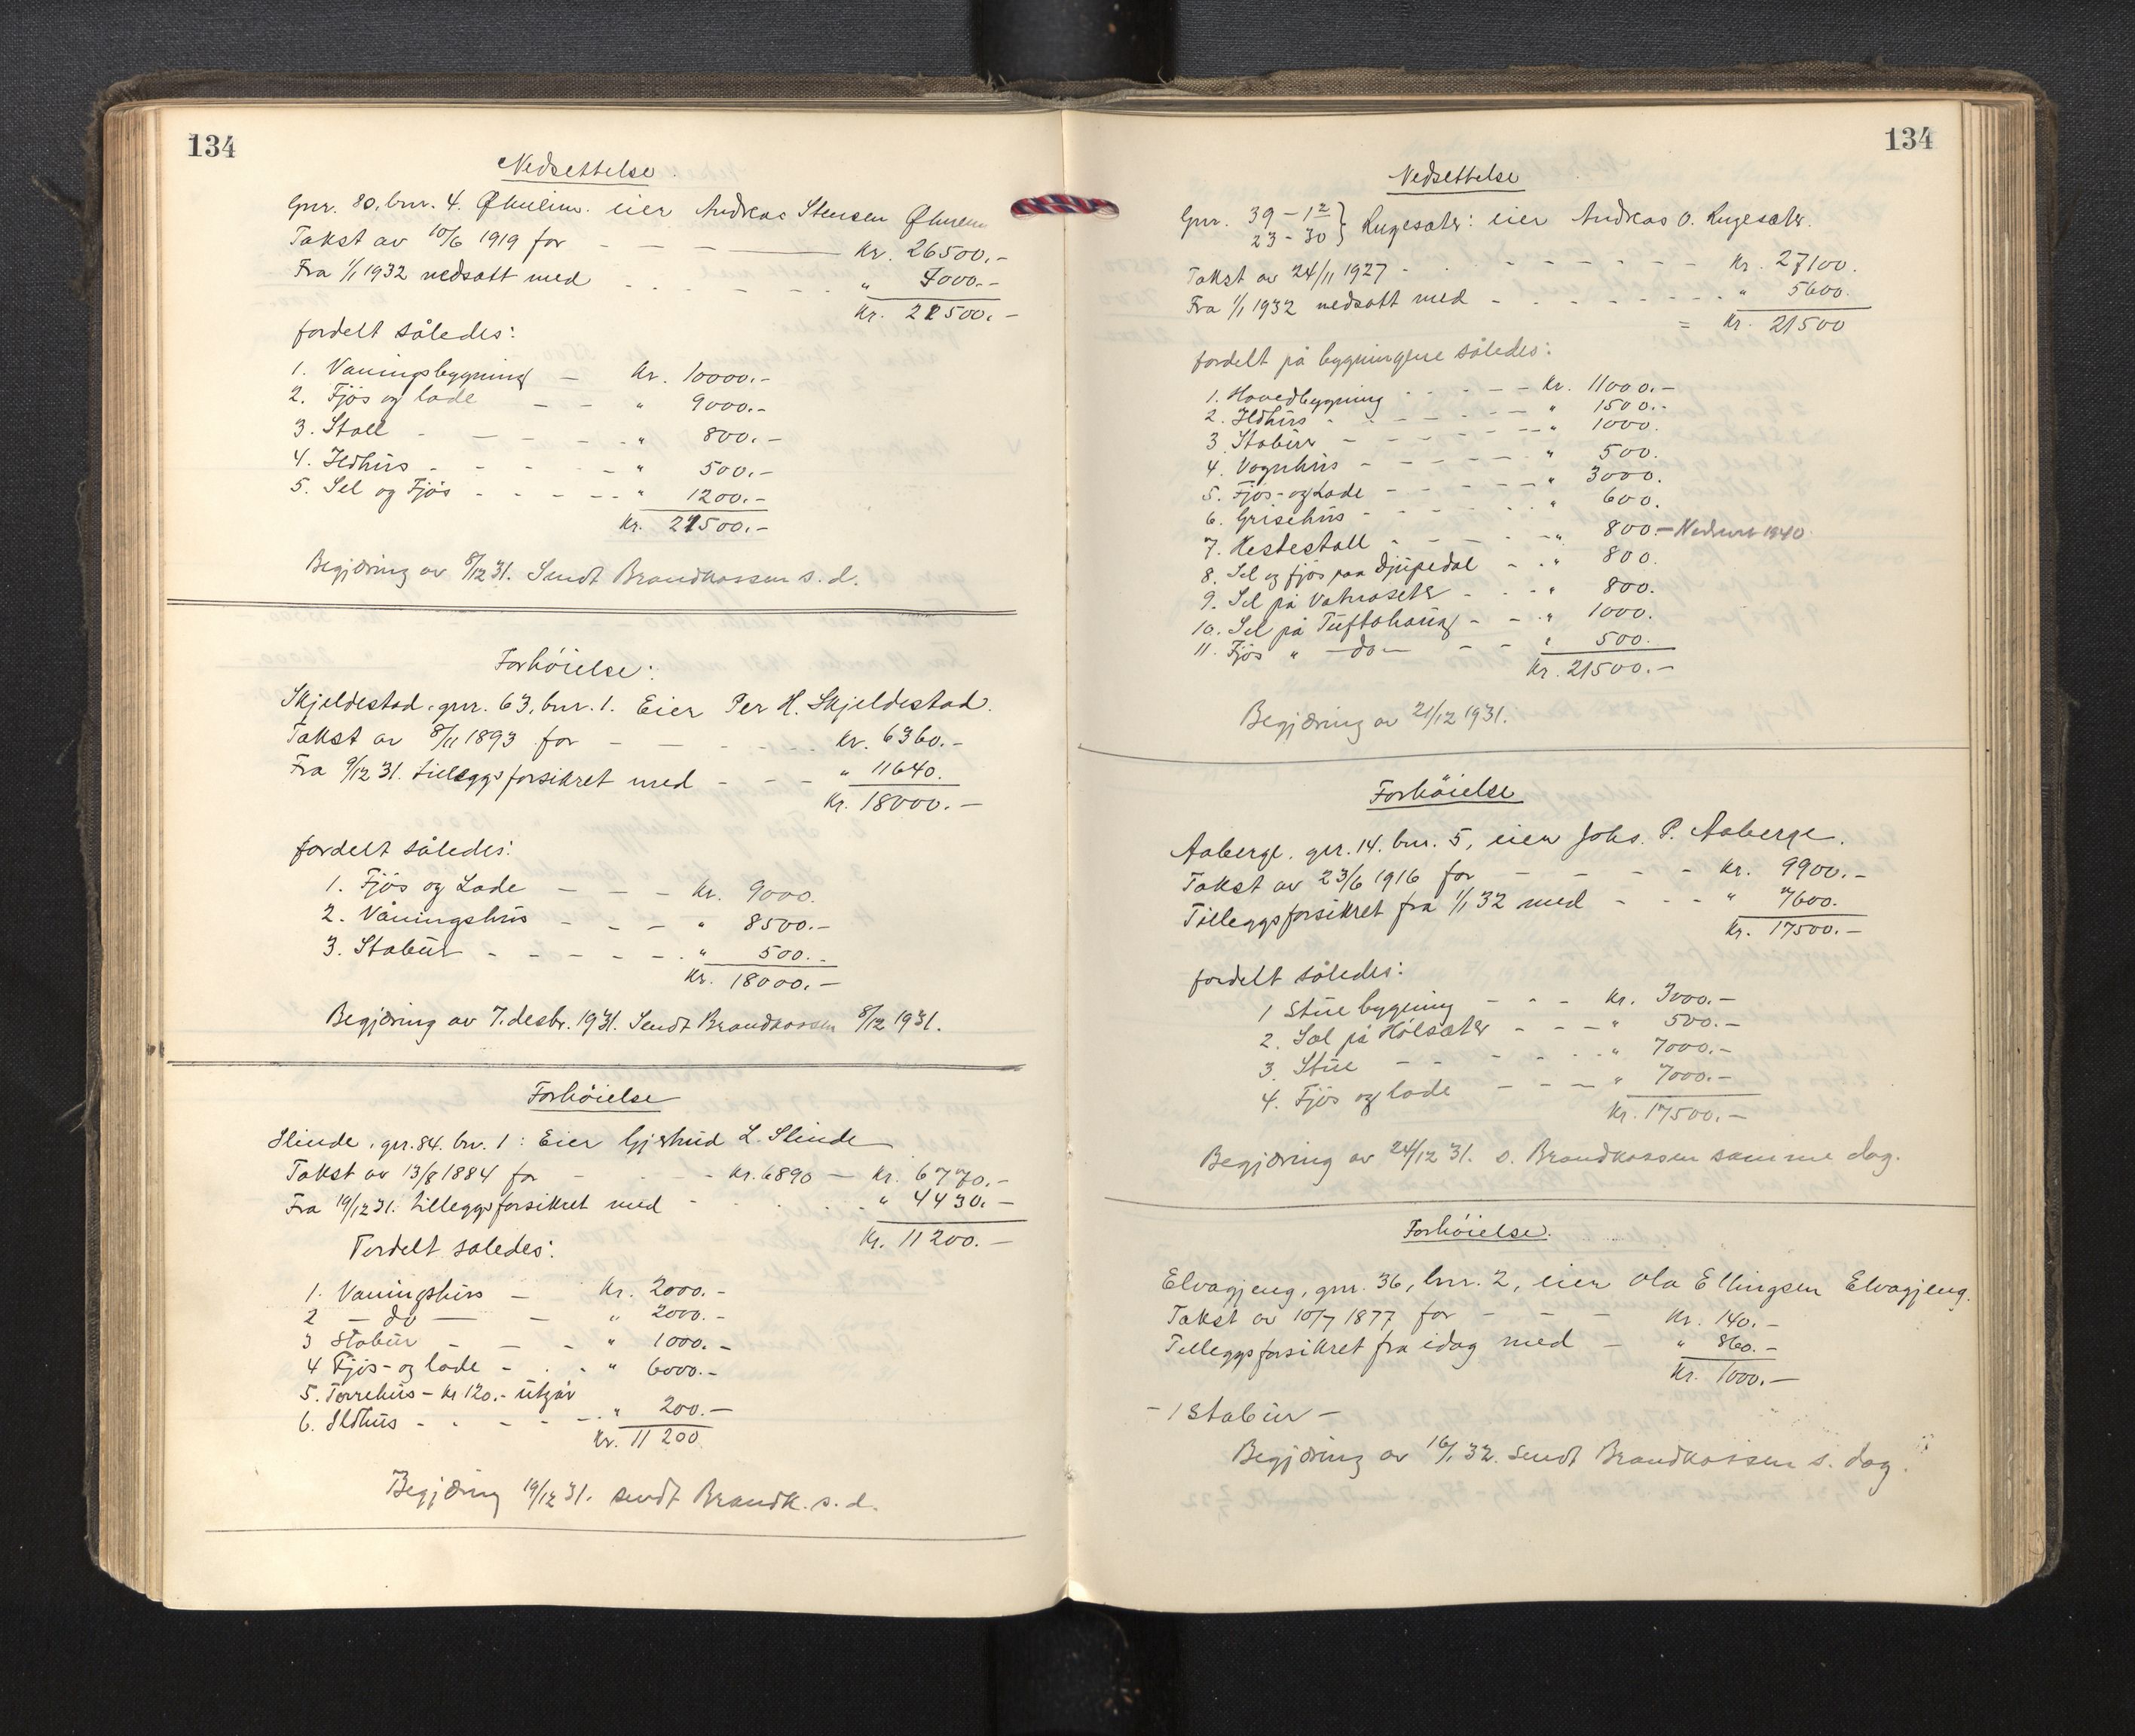 134
Nedsettelse.
Gnr. 80, bnr. 4. Øhulim. eier Andreas Stensen
Takst av 10/6 1919 for - - - Kr. 26500.-
Fra 1/1 1932 nedsatt med - - - - " 000.-
Kr. 21500.-
fordelt således:
1. Våningsbygning - Kr. 10000.-
2. Fjös og lade - - " 9000.-
3. Stall - - - - " 800.-
4. Ildhus - - - - " 500.-
5. Sel og Fjös - - - - " 1200.-
Kr. 21500.-
Begjæring av 8/12 31. Sendt Brandkassen s. d.
Forhöielse:
Skjeldestad, gnr. 63, bnr. 1. Eier Per H. Skjeldestad.
Takst av 8/11 1893 for - - - - Kr. 6360.-
Fra 9/12 31. tilleggsforsikret med - - - " 11640.
Kr. 18000.-
fordelt således:
1. Fjös og Lade - - - Kr. 9000.
2. Våningshus - - - " 8500.-
3. Stabur - - - - - " 500.-
Kr. 18000.-
Begjæring av 7. desbr. 1931. Sendt Brandkassen 8/12 1931.
Forhöielse
Slinde, gnr. 84. bnr. 1: Eier Gjertrud L. Slinde
Takst av 13/8 1884 for - - - Kr. 6890 - Kr. 6770.-
Fra 19/12 31. tilleggsforsikret med - - - " 4430.-
Kr. 11200.-
Fordelt således:
1. Våningshus - Kr. 2000.-
2 - do - - " 2000.-
3 Stabur - - - " 1000.-
4 Fjös- og lade - - - " 6000.-
5. Torrehus - Kr 120.- utgår
6. Ildhus - - - - - " 200.-
Kr. 11200
Begjæring 19/12 31. sendt Brandk. s. d.
134
Nedsettelse
Gnr. 39 - 12 } Rugesæter: eier Andreas O. Rugesæter.
23 - 30
Takst av 24/11 1927 - - - - - Kr. 27100.
Fra 1/1 1932 nedsatt med - - - - " 5600.
= Kr. 21500
fordelt på bygningene således:
1. Hovedbygning - - - - Kr. 11000.-
2. Ildhus - - - - - " 1500.-
3. Stabur - - - - - " 1000.
4. Vognhus - - - - - " 500.
5. Fjös- og Lade - - - - " 3000.
6. Grisehus - - - - - " 600.
7. Hestestall - - - - " 800.- Nedrevet 1940
8. Sel og fjös paa Djupedal - - " 800.
9. Sel på Vatnasæter - - - " 800.
10. Sel på Tuftahaug - - " 1000.
11. Fjös " - do - - - " 500.
Kr. 21500.-
Begjæring av 21/12 1931.
Forhöielse
Aaberge, gnr. 14. bnr. 5, eier Johs. P. Aaberge.
Takst av 23/6 1916 for - - - - Kr. 9900.-
Tilleggsforsikret fra 1/1 32 med - - - " 7600.
Kr. 17500.-
fordelt således:
1 Stuebygning - - - Kr. 3000.-
2. Sæl på Hölsæter - - - " 500.-
3. Stue - - - - - " 7000.-
4. Fjös og lade - - - " 7000.-
Kr. 17500.-
Begjæring av 24/12 31. s. Brandkassen samme dag.
Forhöielse.
Elvagjeng, gnr. 36, bnr. 2, eier Ola Ellingsen Elvagjeng.
Takst av 10/7 1877 for - - - Kr. 140.-
Tilleggsforsikret fra idag med - " 860.-
Kr. 1000.-
- 1 Stabur -
Begjæring av 16/1 32. Sendt Brandkassen s. dag.